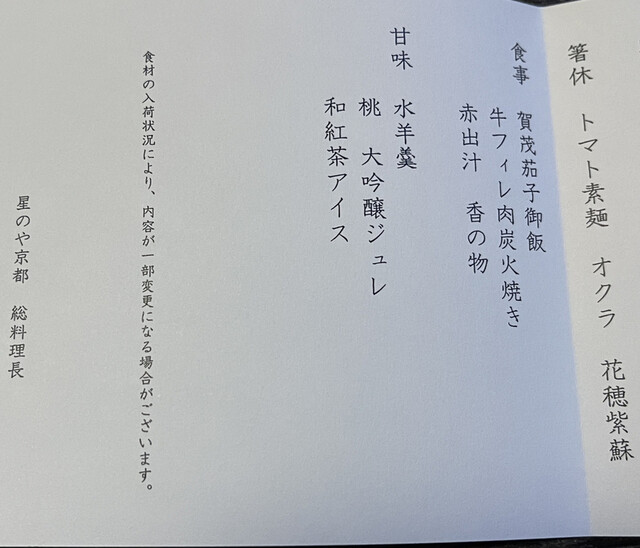 箸休　トマト素麺　オクラ　花穂紫蘇
食事　賀茂茄子御飯
牛フィレ肉炭火焼き
赤出汁　香の物
甘味　水羊羹
桃　大吟醸ジュレ
和紅茶アイス
食材の入荷状況により、内容が一部変更になる場合がございます。
星のや京都　総料理長